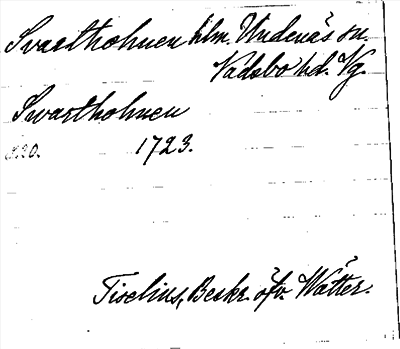 Svartholmen hlm. Undenäs sn.
Vadsbo hd. Vg.
Swartholmen
1723.
Tiselius, Beskr. öfv. Wätter.